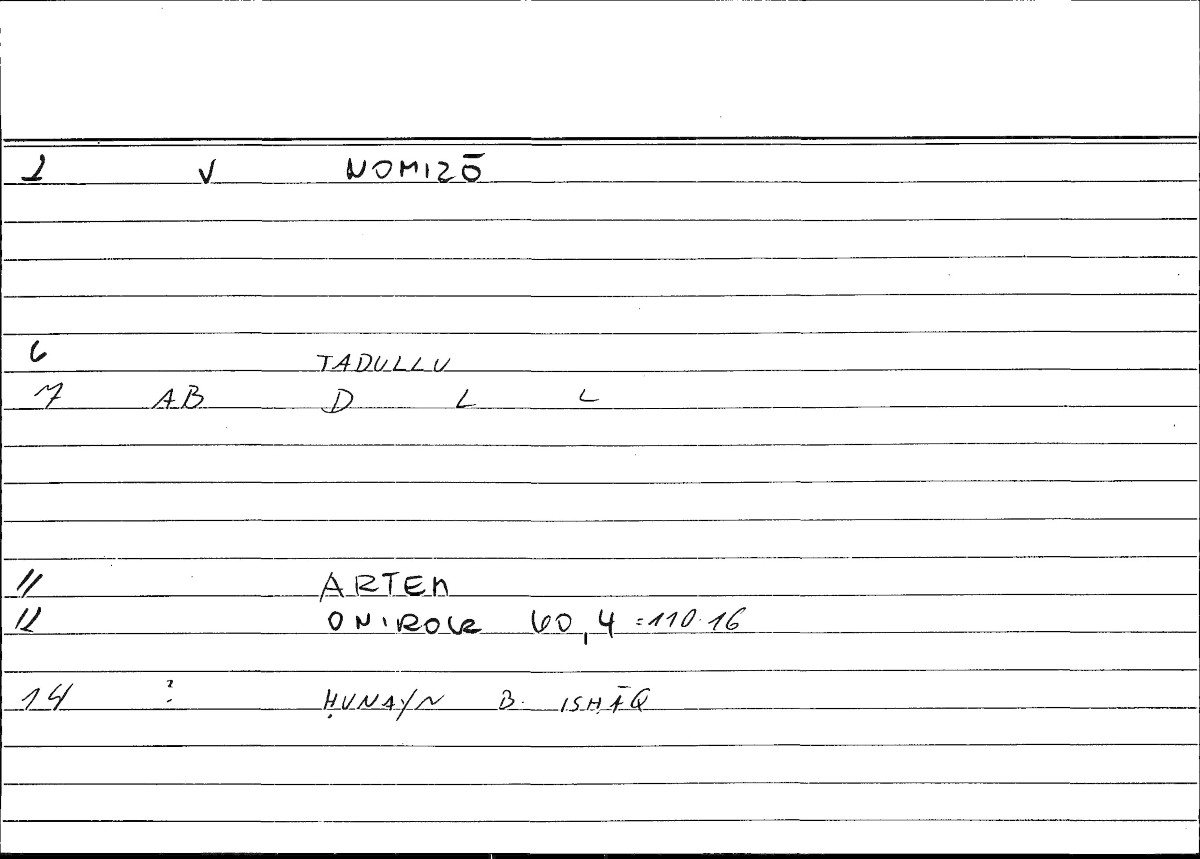 1 V NOMIZŌ
6 TADULLU
7 AB D L L
11 ARTEM
12 ONIROCR 60,4 =110.16
14 ? ḤUNAYN B. ISḤĀQ